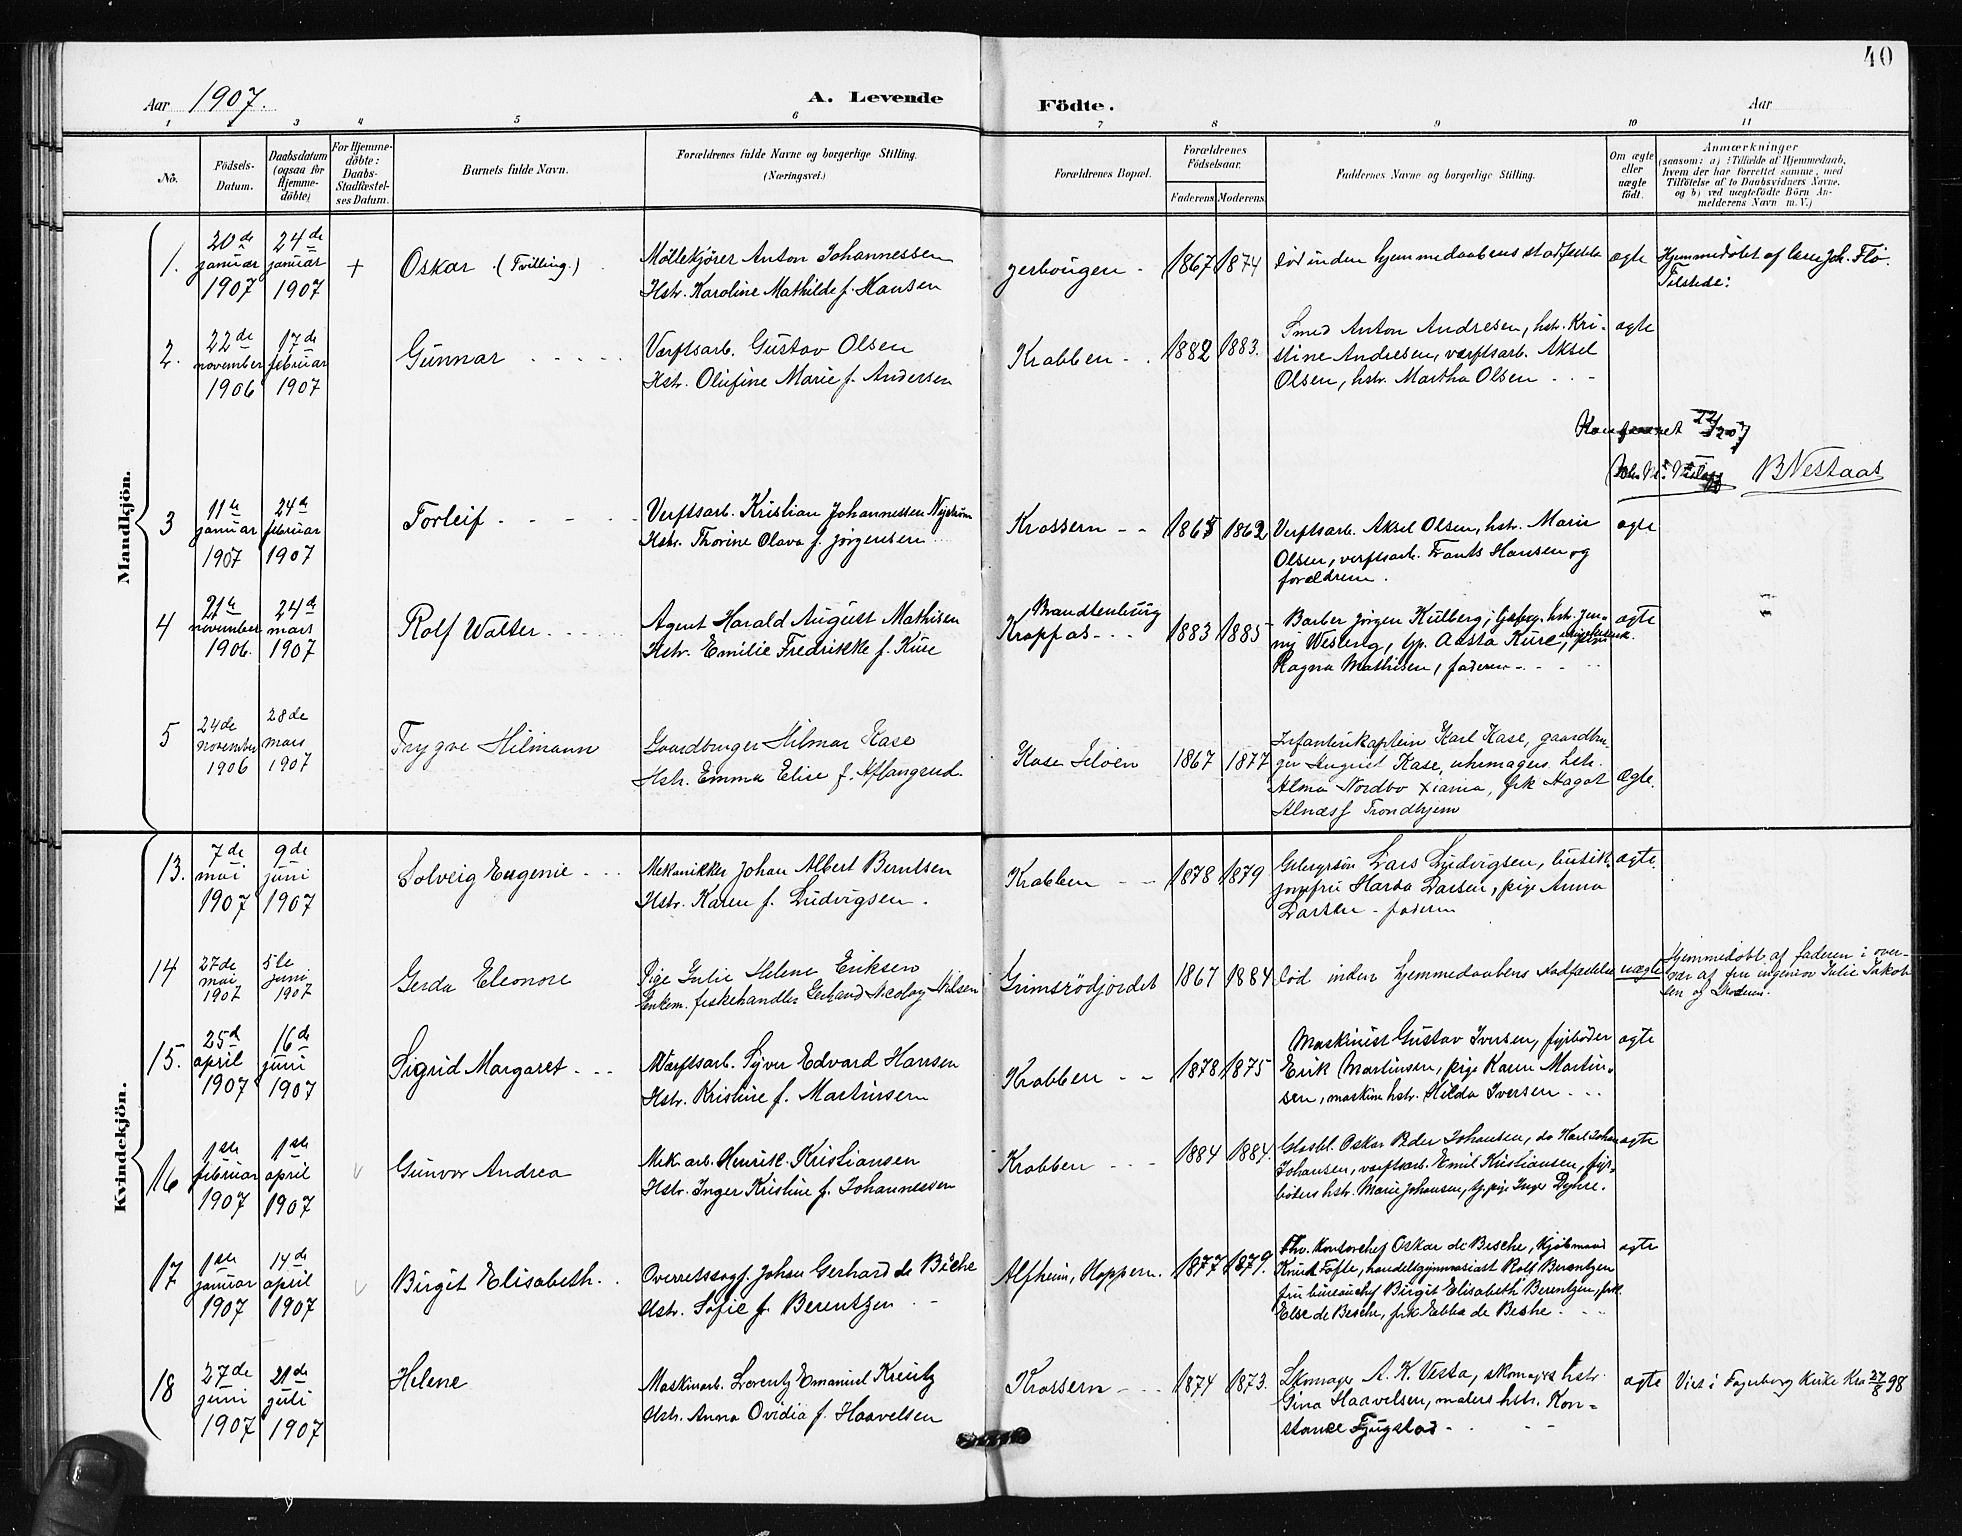 40
Aar 1907.
A. Levende Födte.
Aar
1 2 3 4 5 6 7 8 9 10 11
No.
Födsels-Datum.
Daabsdatum (ogsaa for Hjemme-döbte)
For Hjemme-döbte: Daabs-Stadfæstel-ses Datum.
Barnets fulde Navn.
Forældrenes fulde Navne og borgerlige Stilling. (Næringsvei.)
Forældrenes Bopæl.
Forældrenes Födselsaar.
Faderens.
Moderens.
Faddernes Navne og borgerlige Stilling.
Om ægte eller uægte födt.
Anmærkninger
(saasom: a) i Tilfælde af Hjemmedaab,
hvem der har forrettet samme, med
Tilföielse af to Daabsvidners Navne,
og b) ved uægtefödte Börn An-
melderens Navn m. V.)
Mandkjön.
1. 20de januar 1907
24de januar 1907
+
Oskar (Tvilling.)
Møllekjører Anton Johannessen
Hstr. Karoline Mathilde f. Hansen
1867 1874
død inden hjemmedaabens stadfestelse
ægte
Hjemmedøbt af
Tilstede:
2. 22de november 1906
17de februar 1907
Gunnar
Værftsarb. Gustav Olsen
Hstr. Olufine Marie f. Andersen
Krabben
1882 1883.
Smed Anton Andresen, hstr. Kri-
stine Andresen, værftsarb. Aksel
Olsen, hstr. Martha Olsen
ægte
B Nestaas
3 11te januar 1907
24de februar 1907
Torleif
Verftsarb. Kristian Johannessen Nystrøm
Hstr. Thorine Olava f. Jørgensen
Krossern
1865 1862
Verftsarb. Aksel Olsen, hstr. Marie
Olsen, verftsarb. Frants Hansen og
forældrene.
ægte
4 21de november 1906.
24de mars 1907
Rolf Walter
Agent Harald August Mathisen
Hstr. Emilie Fredrikke f. Kure
Brandtenburg
Krapfos
1883 1885
Barber Jørgen Kulberg, hstr. Jen-
ny Wesleng, Aasta Kure,
Ragna Mathisen, faderen
ægte
5 24de november 1906
28de mars 1907
Trygve Hilmann
Gaardbruger Hilmar Kase
Hstr. Emma Elise f. Aflangrud.
Kase Jeløen
1867 1877
Infanterikaptein Karl Kase, gaardbru-
ger August Kase, uhrmagers hstr.
Alma Nordbo Xiania, frk Hagot
Alnæs Trondhjem
Ægte.
Kvindekjön.
13. 7de mai 1907
9de juni 1907
Solveig Eugenie
Mekanikker Johan Albert Berntsen
Hstr. Karen f. Ludvigsen.
Krabben
1878 1879
Lars Ludvigsen, butik-
jomfru Harda Larsen, pige Anna
Larsen - faderen
ægte.
14 27de mai 1907
5te juni 1907
Gerda Eleonore
Pige Julie Helene Eriksen
Enkem. fiskehandler Gerhard Nicolay Nilsen
Grimsrödjordet
1867 1884
Död inden hjemmedaabens stadfæstelse
uægte
Hjemmedöbt af faderen i over-
vær af fru ingeniør Julie Jakob-
sen og Moderen.
15. 25de april 1907
16de juni 1907
Sigrid Margaret
Værftsarb. Syver Edvard Hansen
Hstr. Kristine f. Martinsen
Krabben
1878 1875
Maskinist Gustav Iversen, fyrbøder
Erik Martinsen, pige Karen Martin-
sen, maskin.hstr. Hilda Iversen
ægte
16 1ste februar 1907
1ste april 1907
Gunvor Andrea
Mek. arb. Henrik Kristiansen
Hstr. Inger Kristine f. Johannessen
Krabben
1884 1884.
Glasbl. Oskar Peder Johansen, do Karl Johan
Johansen, værftsarb. Emil Kristiansen, fyr-
bøders hstr. Marie Johansen, pige Inger Dyhre.
ægte
17 1ste januar 1907
14de april 1907
Birgit Elisabeth
Overretssagf. Johan Gerhard de Besche
Hstr. Sofie f. Berentzen
Alfheim, Hoppern.
1877 1879.
Fhv. kontorchef Oskar de Besche, kjøbmand
Knut Tofte, handelsgymnasiast Rolf Berentzen
fru bureauchef Birgit Elisabeth Berentzen, frk.
Else de Besche, frk Ebba de Beshe
ægte
18 27de juni 1907
21de juli 1907
Helene
Maskinarb. Lorentz Emanuel Kreutz
Hstr. Anna Ovidia f. Haavelsen
Krossern
1874 1873.
Skomager A. K. Vesta, skomagers hstr.
Gina Haavelsen, malers hstr. Kon-
stance Fjugstad
ægte
Viet i Fagerborg Kirke Kra 27/8 98